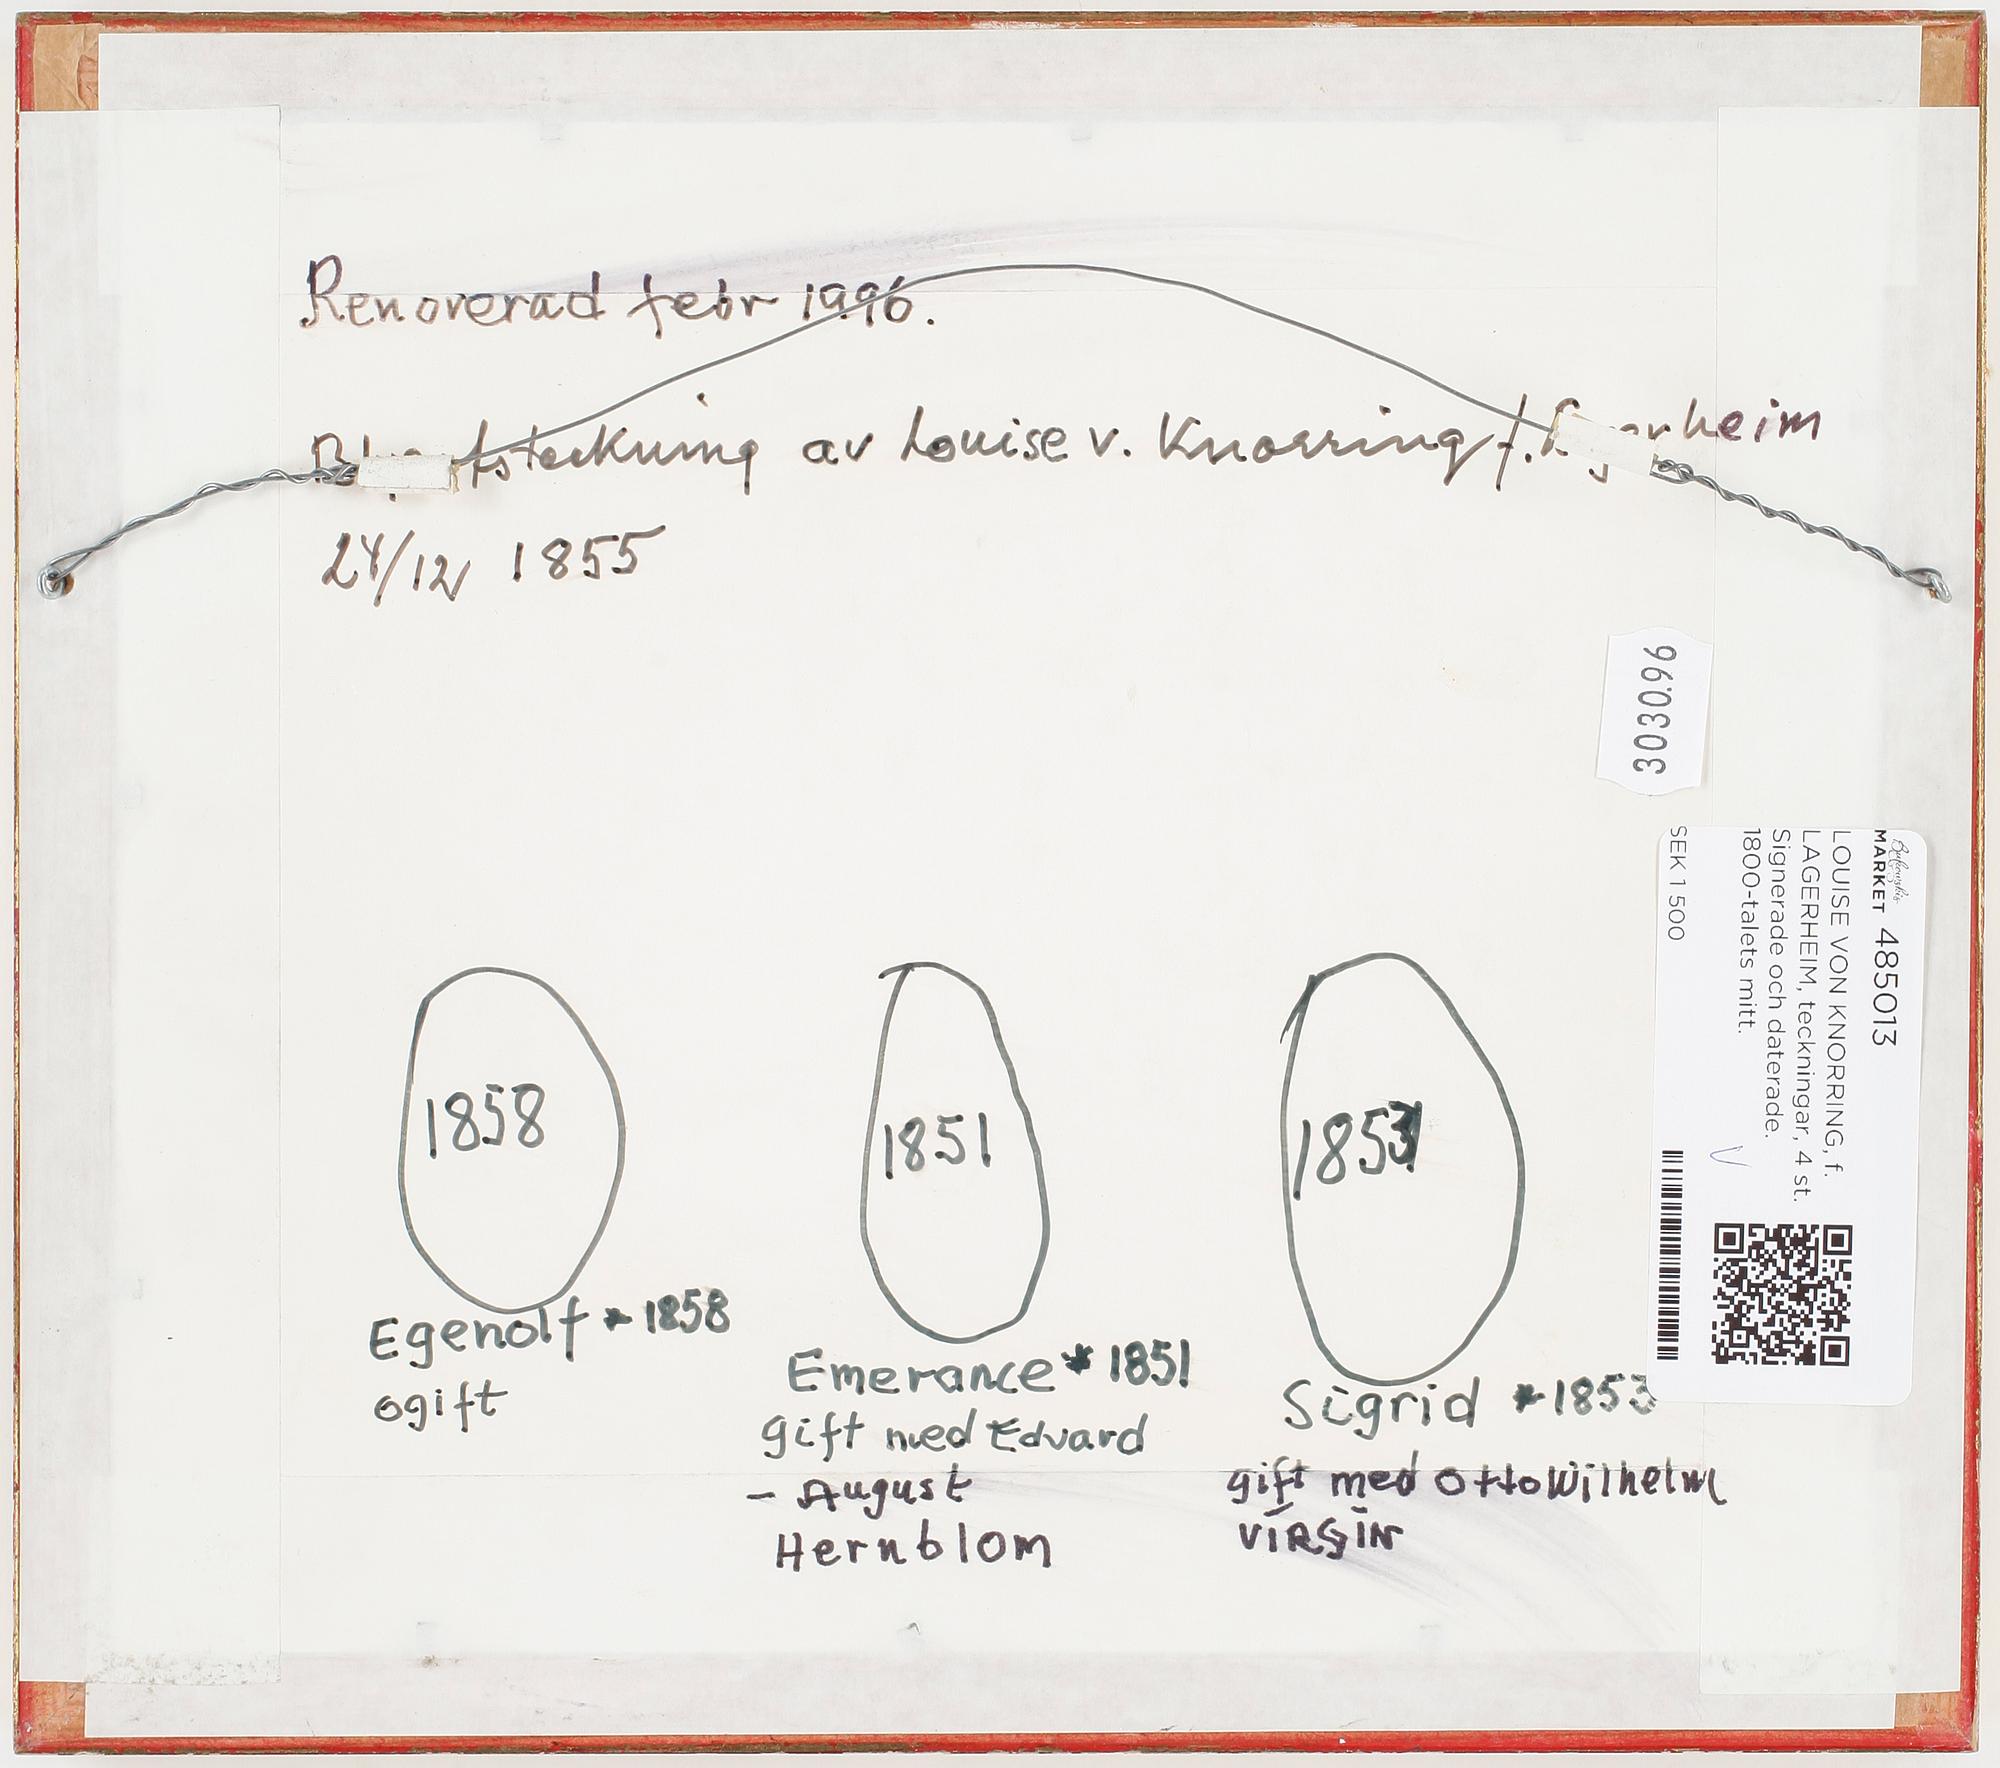 Renoverad febr 1996.
av Louise v. Knorring f.
24/12 1855
303096
Bukowskis
MARKET 485013
LOUISE VON KNORRING, f.
LAGERHEIM, teckningar, 4 st.
Signerade och daterade.
1800-talets mitt.
SEK 1 500
1858
1851
1853
Egenolf * 1858
ogift
Emerance * 1851
gift med Edvard
- August
Hernblom
Sigrid * 1853
gift med Otto Wilhelm
VIRGIN